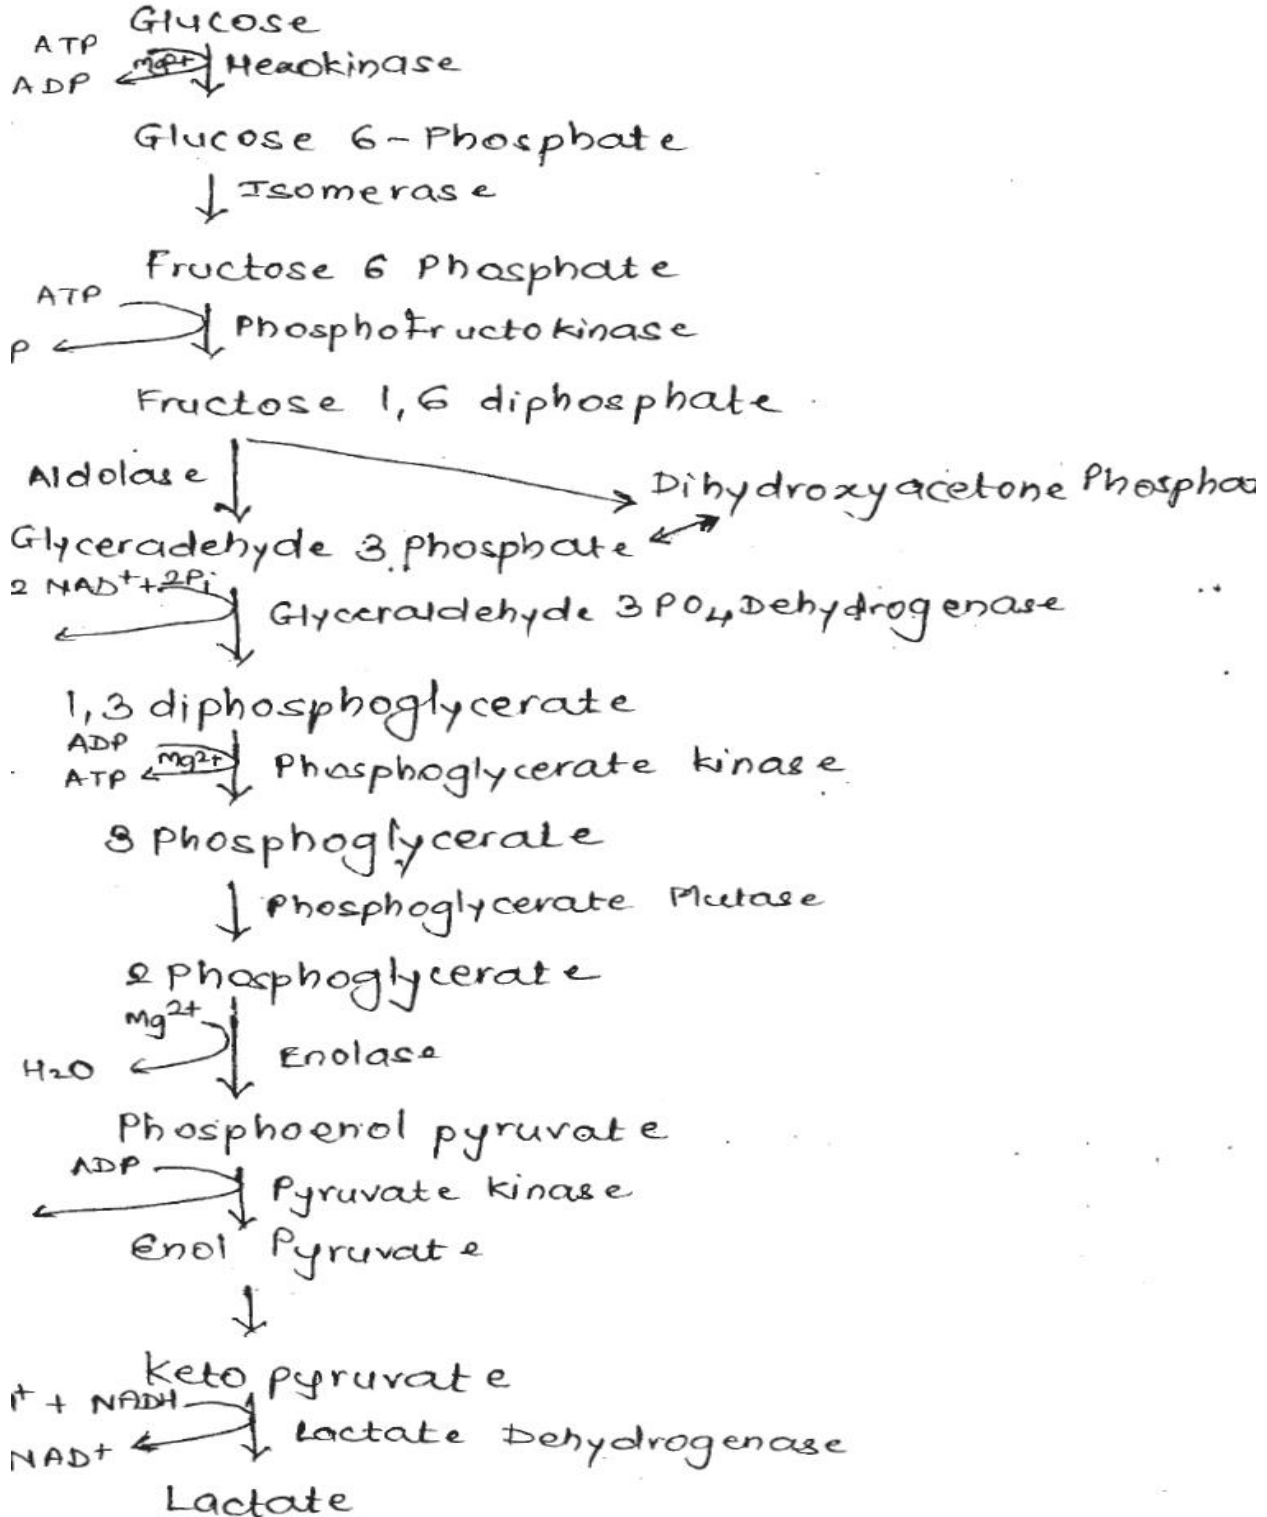 Glucose
ATP
Mg2+ Hexokinase
ADP
Glucose 6-Phosphate
Isomerase
Fructose 6 Phosphate
ATP
Phosphofructokinase
P
Fructose 1,6 diphosphate
Aldolase
Dihydroxyacetone Phospha
Glyceradehyde 3 Phosphate
2 NAD+ + 2Pi
Glyceraldehyde 3 PO4 Dehydrogenase
1,3 diphosphoglycerate
ADP
Mg2+ Phosphoglycerate kinase
ATP
3 Phosphoglycerate
Phosphoglycerate Mutase
2 Phosphoglycerate
Mg2+
Enolase
H2O
Phosphoenol pyruvate
ADP
Pyruvate kinase
Enol Pyruvate
Keto pyruvate
+ + NADH
Lactate Dehydrogenase
NAD+
Lactate